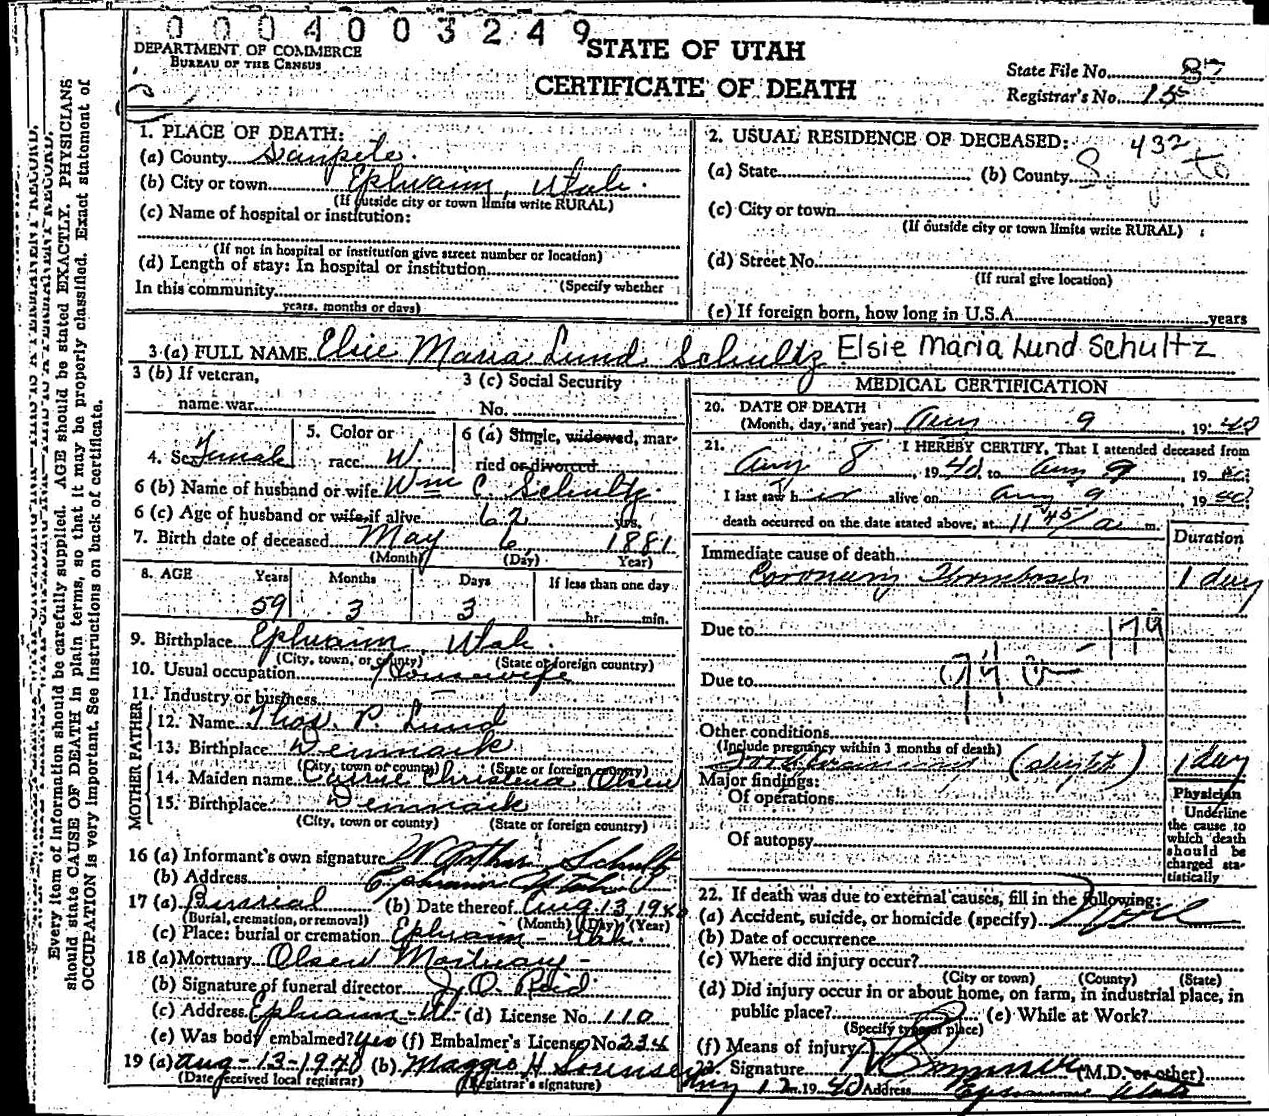 0 0 0 4 0 0 3 2 4 9
DEPARTMENT OF COMMERCE
BUREAU OF THE CENSUS
STATE OF UTAH
CERTIFICATE OF DEATH
State File No. 85
Registrar's No. 15
1. PLACE OF DEATH:
(a) County Sanpete.
(b) City or town Ephraim, Utah.
(If outside city or town limits write RURAL)
(c) Name of hospital or institution:
(If not in hospital or institution give street number or location)
(d) Length of stay: In hospital or institution
(Specify whether
In this community
years, months or days)
2. USUAL RESIDENCE OF DECEASED:
432
(a) State (b) County
(c) City or town
(If outside city or town limits write RURAL)
(d) Street No.
(If rural give location)
(e) If foreign born, how long in U.S.A. years
3 (a) FULL NAME Elsie Maria Lund Schultz Elsie Maria Lund Schultz
3 (b) If veteran,
name war
3 (c) Social Security
No.
4. Sex Female
5. Color or
race W.
6 (a) Single, widowed, mar-
ried or divorced
6 (b) Name of husband or wife Wm C Schultz
6 (c) Age of husband or wife if alive 62 yrs.
7. Birth date of deceased May 6, 1881
(Month) (Day) Year)
8. AGE Years Months Days If less than one day
59 3 3 hr. min.
9. Birthplace Ephraim, Utah.
(City, town, or county) (State or foreign country)
10. Usual occupation Housewife
11. Industry or business
FATHER
12. Name Thos. P. Lund
13. Birthplace Denmark
(City, town or county) (State or foreign country)
MOTHER
14. Maiden name Carrie Christena Olsen
15. Birthplace Denmark
(City, town or county) (State or foreign country)
16 (a) Informant's own signature W Arthur Schultz
(b) Address Ephraim Utah
17 (a) Burial (b) Date thereof Aug 13 1940
(Burial, cremation, or removal) (Month) (Day) (Year)
(c) Place: burial or cremation Ephraim - Utah.
18 (a) Mortuary Olsen Mortuary -
(b) Signature of funeral director
(c) Address Ephraim - Ut - (d) License No. 110
(e) Was body embalmed? Yes (f) Embalmer's License No. 334
19 (a) Aug - 13 - 1940 (b) Maggie H Sorensen
(Date received local registrar) (Registrar's signature)
MEDICAL CERTIFICATION
20. DATE OF DEATH
(Month, day, and year) Aug 9, 1940
21. I HEREBY CERTIFY, That I attended deceased from
Aug 8, 1940 to Aug 9, 1940
I last saw her alive on Aug 9 1940
death occurred on the date stated above, at 11 45/a m.
Duration
Immediate cause of death
Coronary Thrombosis 1 day
Due to
Due to
Other conditions
(Include pregnancy within 3 months of death)
(slight) 1 day
Major findings:
Of operations
Of autopsy
Physician
Underline
the cause to
which death
should be
charged sta-
tistically
22. If death was due to external causes, fill in the following:
(a) Accident, suicide, or homicide (specify)
(b) Date of occurrence
(c) Where did injury occur?
(City or town) (County) (State)
(d) Did injury occur in or about home, on farm, in industrial place, in
public place? (e) While at Work?
(Specify type of place)
(f) Means of injury
23. Signature (M.D. or other)
Aug 12 1940 Address Ephraim Utah
Every item of information should be carefully supplied. AGE should be stated EXACTLY. PHYSICIANS
should state CAUSE OF DEATH in plain terms, so that it may be properly classified. Exact statement of
OCCUPATION is very important. See instructions on back of certificate.